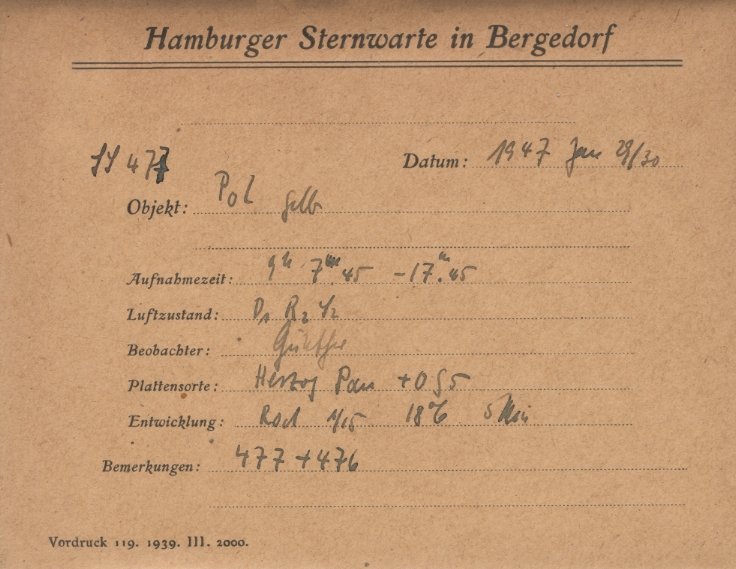 Hamburger Sternwarte in Bergedorf
SS 477 Datum: 1947 Jan 29/30
Objekt: Pol gelb
Aufnahmezeit: 9h 7m.45 – 17m.45
Luftzustand: D1 R2 1/2
Beobachter: Günther
Plattensorte: Herzog Pan + OG5
Entwicklung: Rod 1/15 18°C 5 Min
Bemerkungen: 477 + 476
Vordruck 119. 1939. III. 2000.